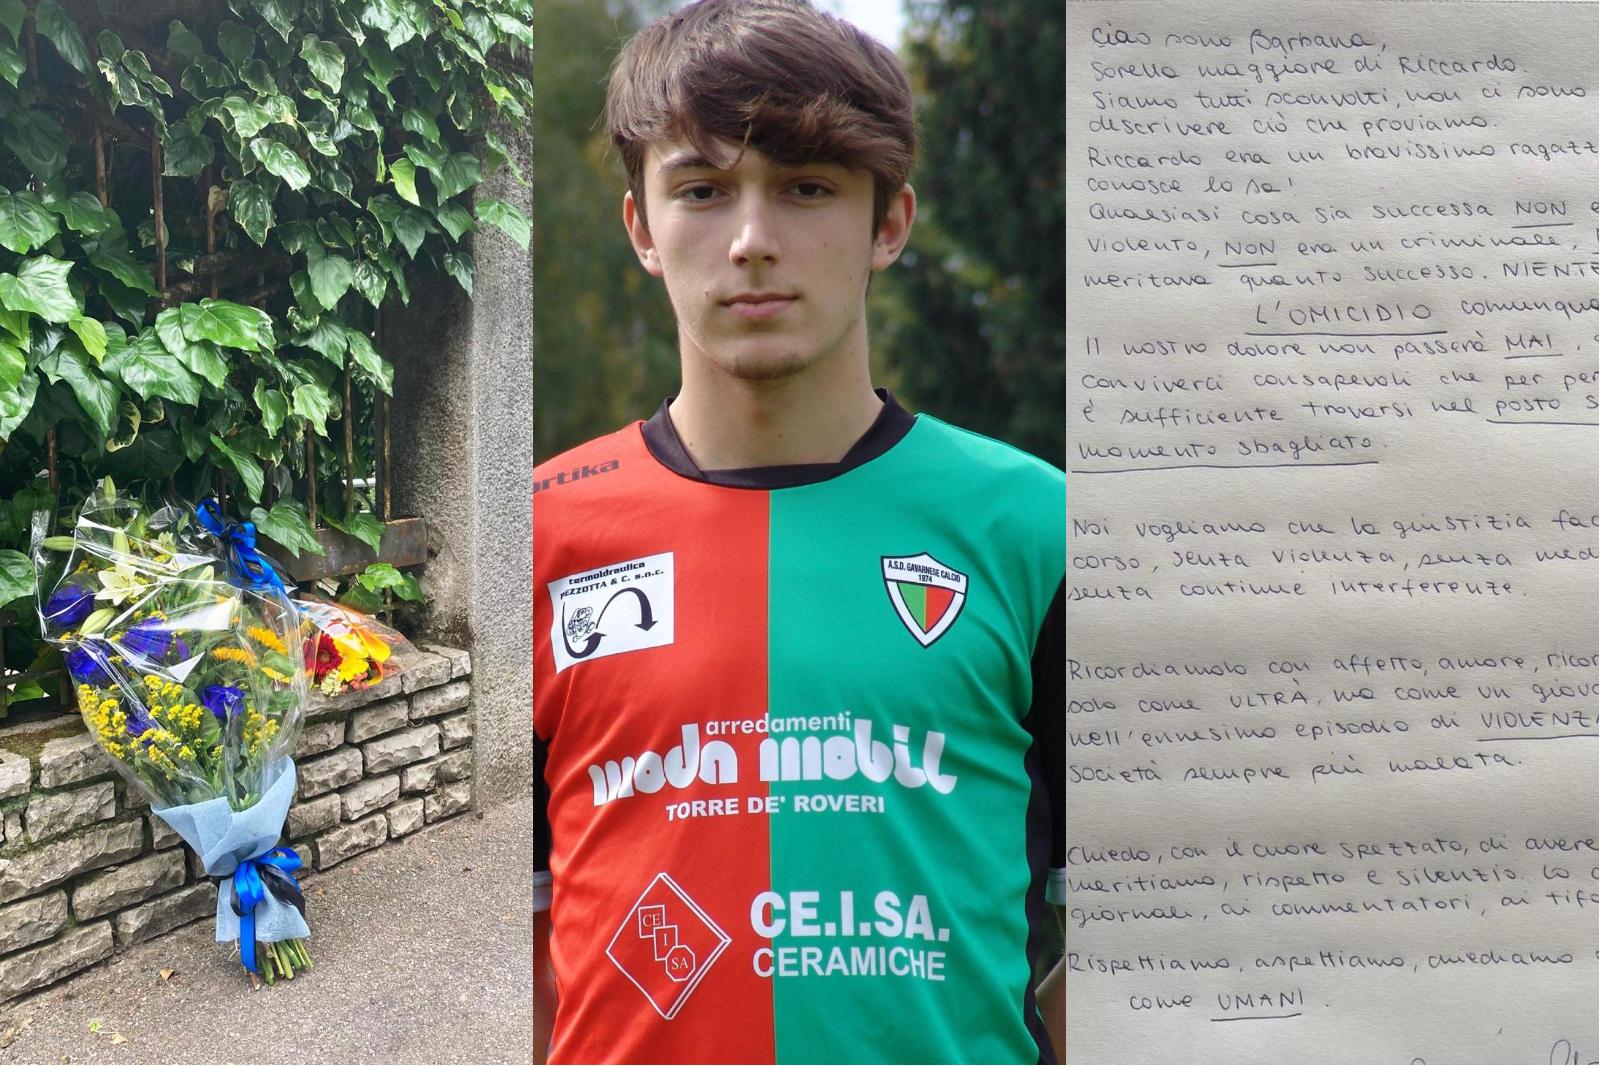 ortika
termoidraulica
PEZZOTTA & C. s.n.c.
A.S.D. GAVARNESE CALCIO
1974
arredamenti
moda mobil
TORRE DE' ROVERI
CE
I
SA
CE.I.SA.
CERAMICHE
Ciao sono Barbara,
Sorella maggiore di Riccardo.
Siamo tutti sconvolti, non ci sono
descrivere ciò che proviamo.
Riccardo era un bravissimo ragazz
conosce lo sa!
Qualsiasi cosa sia successa NON e
violento, NON era un criminale,
meritava quanto successo. NIENTE
L'OMICIDIO comunqu
Il nostro dolore non passerà MAI,
conviverci consapevoli che per per
è sufficiente trovarsi nel posto s
momento sbagliato.
Noi vogliamo che la giustizia fac
corso, senza violenza, senza med
senza continue interferenze.
Ricordiamolo con affetto, amore, ricor
solo come ULTRÀ, ma come un giova
nell'ennesimo episodio di VIOLENZA
società sempre più malata.
Chiedo, con il cuore spezzato, di avere
meritiamo, rispetto e silenzio. Lo c
giornali, ai commentatori, ai tifo
Rispettiamo, aspettiamo, chiediamo
come UMANI.